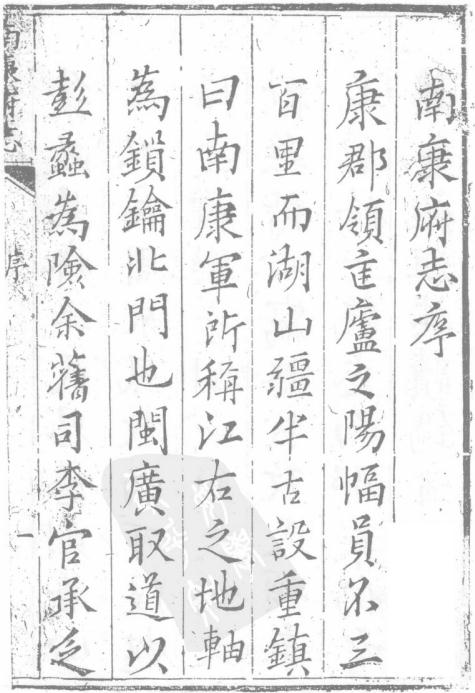 南康府志序
康郡領匡廬之陽幅員不三
百里而湖山疆半古設重鎮
曰南康軍所稱江右之地軸
為鎖鑰北門也閩廣取道以
彭蠡為險余舊司李官承乏
南康府志
序
一